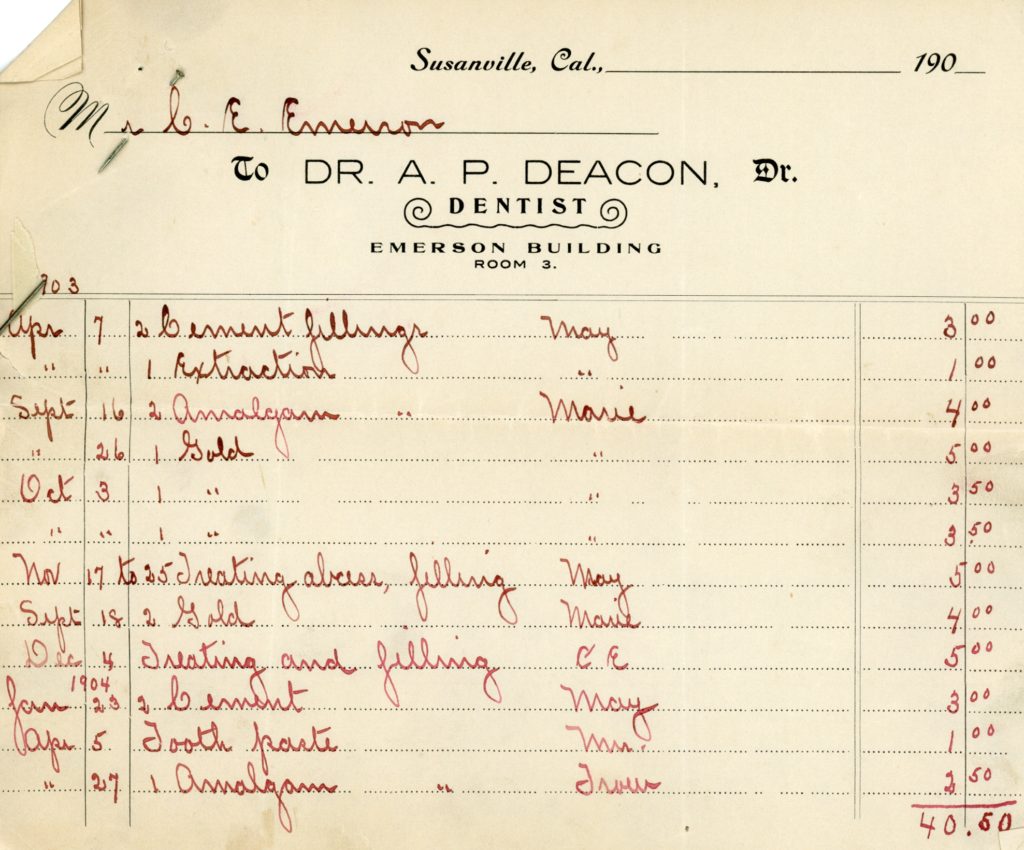 Susanville, Cal., 190
Mr C. E. Emerson
To DR. A. P. DEACON, Dr.
DENTIST
EMERSON BUILDING
ROOM 3.
903
Apr 7 2 Cement fillings May 3 00
" " 1 Extraction " 1 00
Sept 16 2 Amalgam " Marie 4 00
" 26 1 Gold " 5 00
Oct 3 1 " " 3 50
" " 1 " " 3 50
Nov 17 to 25 Treating abcess, filling May 5 00
Sept 18 2 Gold Marie 4 00
Dec 4 Treating and filling C E 5 00
1904
Jan 23 2 Cement May 3 00
Apr 5 Tooth paste 1 00
" 27 1 Amalgam " 2 50
40.50